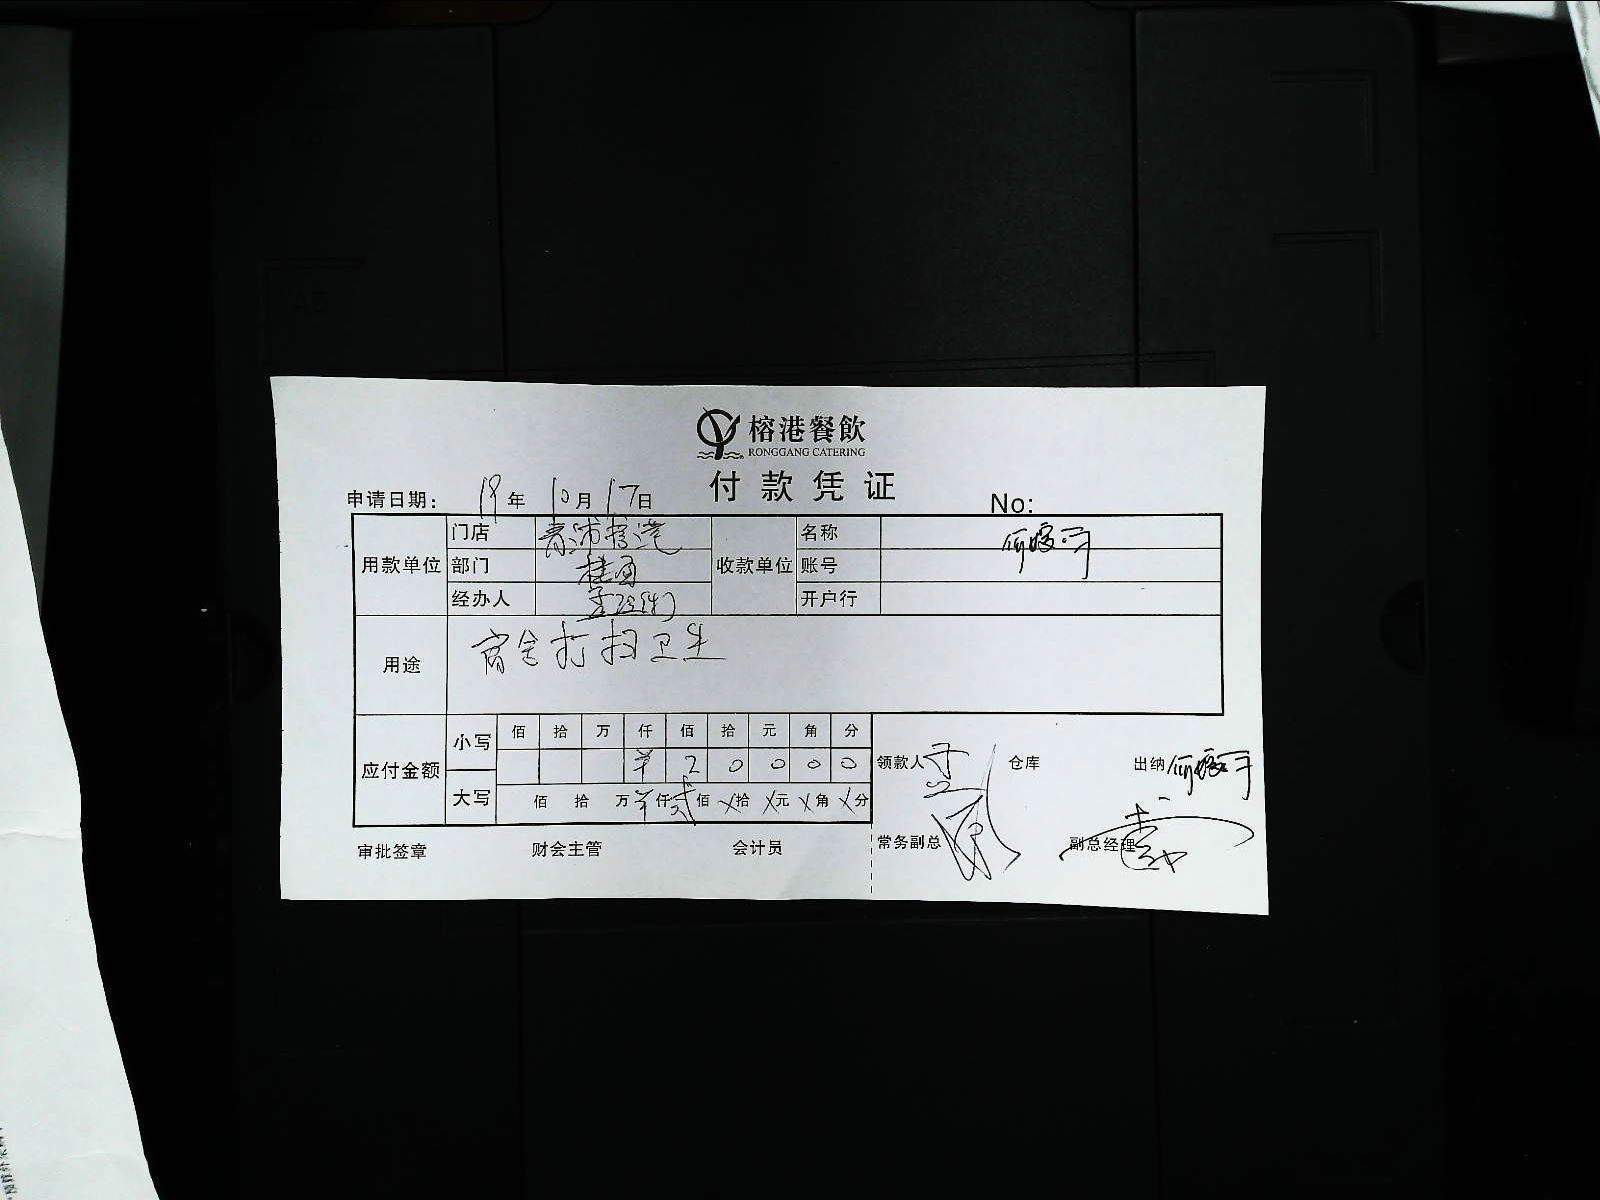 榕港餐飲
RONGGANG CATERING
付款凭证
申请日期: 19年 10月 17日 No:
用款单位 门店 青浦榕港 收款单位 名称
部门 账号
经办人 开户行
用途 宿舍打扫卫生
应付金额 小写 佰 拾 万 仟 佰 拾 元 角 分
¥ 2 0 0 0 0
大写 佰 拾 万 ¥ 仟 贰 佰 X 拾 X 元 X 角 X 分
领款人 仓库 出纳
常务副总 副总经理
审批签章 财会主管 会计员